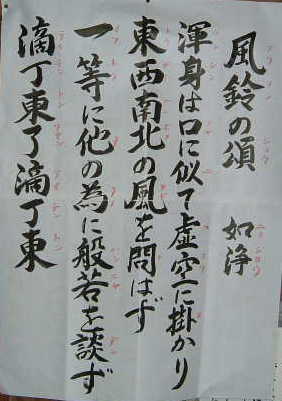 風鈴の頌 如浄
渾身は口に似て虚空に掛かり
東西南北の風を問はず
一等に他の為に般若を談ず
滴丁東了滴丁東